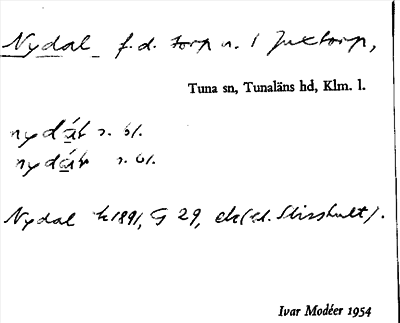 Nydal f.d. torp u. 1 Juxtorp,
Tuna sn, Tunaläns hd, Klm. l.
nydáḷ s. bl.
nydáḷ s. bl.
Nydal h 1891, G 29, ek (d. Slisshult).
Ivar Modéer 1954